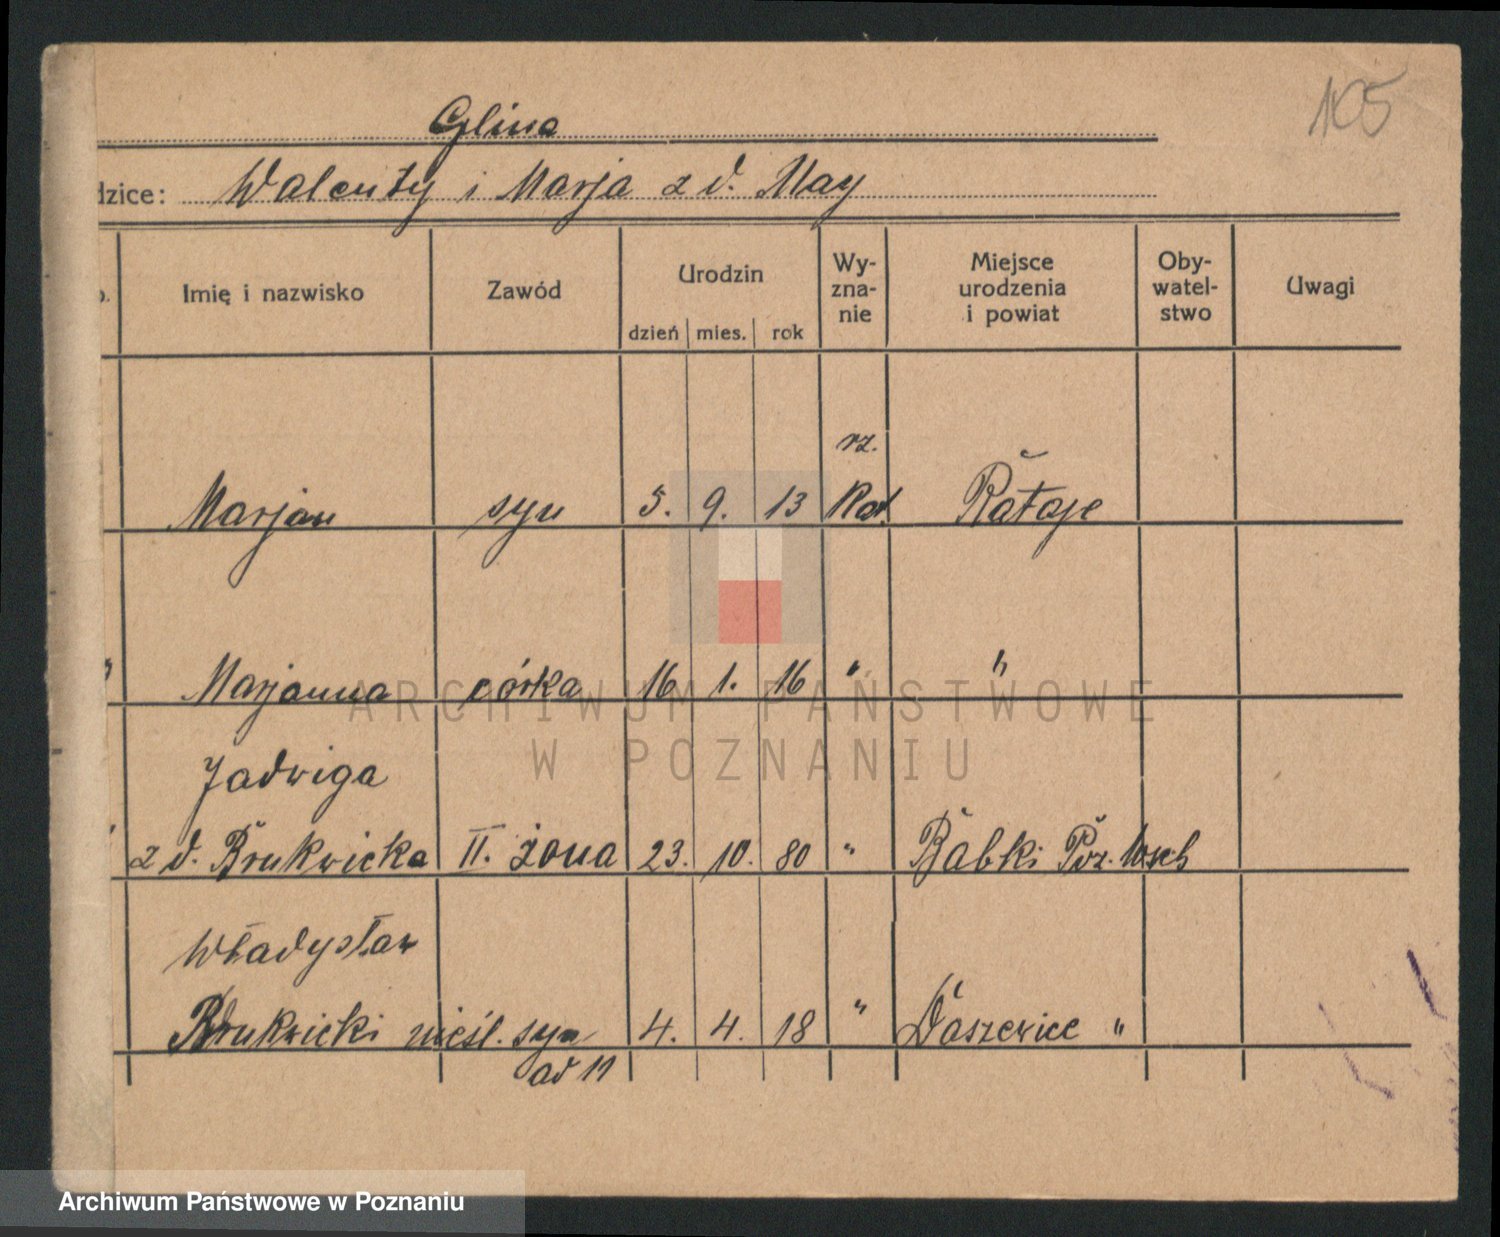 105
Glina
dzice: Walenty i Marja z d. May
Imię i nazwisko Zawód Urodzin dzień mies. rok Wy-zna-nie Miejsce urodzenia i powiat Oby-watel-stwo Uwagi
rz.
Marjan syn 5. 9. 13 Kat. Rataje
Marjanna córka 16 1. 16 " "
Jadwiga
z d. Brukwicka II. żona 23. 10. 80 " Babki Poz. Wsch
Władysław
Brukwicki nieśl. syn 4. 4. 18 " Daszewice "
ad 11
ARCHIWUM PAŃSTWOWE
W POZNANIU
Archiwum Państwowe w Poznaniu